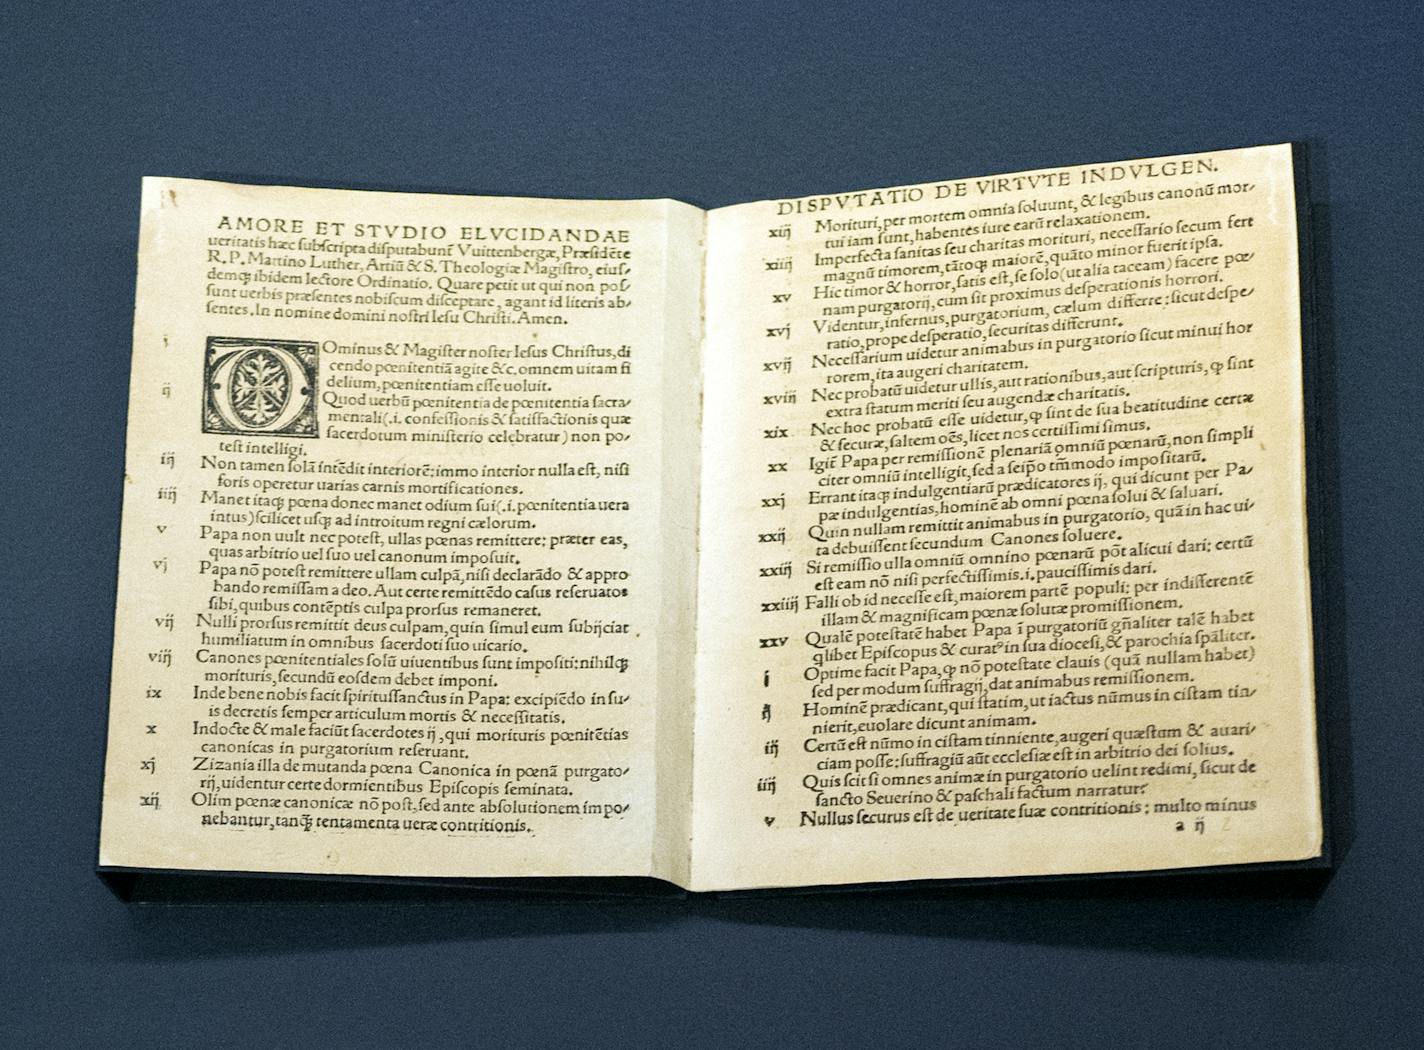 AMORE ET STVDIO ELVCIDANDAE
ueritatis hæc subscripta disputabunt̃ Vuittenbergæ, Præsidẽte
R. P. Martino Luther, Artiũ & S. Theologiæ Magistro, eius/
demq̃ ibidem lectore Ordinatio. Quare petit ut qui non pos/
sunt uerbis præsentes nobiscum disceptare, agant id literis ab/
sentes. In nomine domini nostri Iesu Christi. Amen.
i DOminus & Magister noster Iesus Christus, di
cendo pœnitentiã agite &c. omnem uitam fi
delium, pœnitentiam esse uoluit.
ij Quod uerbũ pœnitentia de pœnitentia sacra/
mentali (.i. confessionis & satisfactionis quæ
sacerdotum ministerio celebratur) non po/
test intelligi.
iij Non tamen solã intẽdit interiorẽ: immo interior nulla est, nisi
foris operetur uarias carnis mortificationes.
iiij Manet itaq̃ pœna donec manet odium sui (.i. pœnitentia uera
intus) scilicet usq̃ ad introitum regni cælorum.
v Papa non uult nec potest, ullas pœnas remittere: præter eas,
quas arbitrio uel suo uel canonum imposuit.
vj Papa nõ potest remittere ullam culpã, nisi declarãdo & appro
bando remissam a deo. Aut certe remittẽdo casus reseruatos
sibi, quibus contẽptis culpa prorsus remaneret.
vij Nulli prorsus remittit deus culpam, quin simul eum subijciat
humiliatum in omnibus sacerdoti suo uicario.
viij Canones pœnitentiales solũ uiuentibus sunt impositi: nihilq̃
morituris, secundũ eosdem debet imponi.
ix Inde bene nobis facit spiritussanctus in Papa: excipiẽdo in su/
is decretis semper articulum mortis & necessitatis.
x Indocte & male faciũt sacerdotes ij, qui morituris pœnitẽtias
canonicas in purgatorium reseruant.
xj Zizania illa de mutanda pœna Canonica in pœnã purgato/
rij, uidentur certe dormientibus Episcopis seminata.
xij Olim pœnæ canonicæ nõ post, sed ante absolutionem impo/
nebantur, tanq̃ tentamenta ueræ contritionis.
DISPVTATIO DE VIRTVTE INDVLGEN.
xiij Morituri, per mortem omnia soluunt, & legibus canonũ mor/
tui iam sunt, habentes iure earũ relaxationem.
xiiij Imperfecta sanitas seu charitas morituri, necessario secum fert
magnũ timorem, tãtoq̃ maiorẽ, quãto minor fuerit ipsa.
xv Hic timor & horror, satis est, se solo (ut alia taceam) facere pœ/
nam purgatorij, cum sit proximus desperationis horrori.
xvj Videntur, infernus, purgatorium, cælum differre: sicut despe/
ratio, prope desperatio, securitas differunt.
xvij Necessarium uidetur animabus in purgatorio sicut minui hor
rorem, ita augeri charitatem.
xviij Nec probatũ uidetur ullis, aut rationibus, aut scripturis, ꝙ sint
extra statum meriti seu augendæ charitatis.
xix Nec hoc probatũ esse uidetur, ꝙ sint de sua beatitudine certæ
& securæ, saltem oẽs, licet nos certissimi simus.
xx Igit̃ Papa per remissionẽ plenariã omniũ pœnarũ, non simpli
citer omniũ intelligit, sed a seip̃o tm̃modo impositarũ.
xxj Errant itaq̃ indulgentiarũ prædicatores ij, qui dicunt per Pa/
pæ indulgentias, hominẽ ab omni pœna solui & saluari.
xxij Quin nullam remittit animabus in purgatorio, quã in hac ui/
ta debuissent secundum Canones soluere.
xxiij Si remissio ulla omniũ omnino pœnarũ põt alicui dari: certũ
est eam nõ nisi perfectissimis .i. paucissimis dari.
xxiiij Falli ob id necesse est, maiorem partẽ populi: per indifferentẽ
illam & magnificam pœnæ solutæ promissionem.
xxv Qualẽ potestatẽ habet Papa ĩ purgatoriũ gñaliter talẽ habet
q̃libet Episcopus & curatꝰ in sua diocesi, & parochia sp̃aliter.
i Optime facit Papa, ꝙ nõ potestate clauis (quã nullam habet)
sed per modum suffragij, dat animabus remissionem.
ij Hominẽ prædicant, qui statim, ut iactus nũmus in cistam tin/
nierit, euolare dicunt animam.
iij Certũ est nũmo in cistam tinniente, augeri quæstum & auari/
ciam posse: suffragiũ aũt ecclesiæ est in arbitrio dei solius.
iiij Quis scit si omnes animæ in purgatorio uelint redimi, sicut de
sancto Seuerino & paschali factum narratur?
v Nullus securus est de ueritate suæ contritionis: multo minus
a ij 2